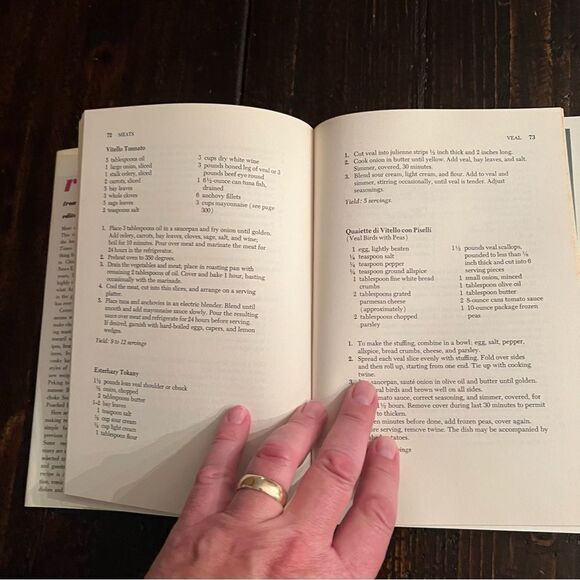 72 MEATS
Vitello Tonnato
5 tablespoons oil
1 large onion, sliced
1 stalk celery, sliced
2 carrots, sliced
5 bay leaves
3 whole cloves
3 sage leaves
2 teaspoons salt
3 cups dry white wine
3 pounds boned leg of veal or 3
pounds beef eye round
1 6½-ounce can tuna fish,
drained
6 anchovy fillets
3 cups mayonnaise (see page
300)
1. Place 3 tablespoons oil in a saucepan and fry onion until golden.
Add celery, carrots, bay leaves, cloves, sage, salt, and wine;
boil for 10 minutes. Pour over meat and marinate the meat for
24 hours in the refrigerator.
2. Preheat oven to 350 degrees.
3. Drain the vegetables and meat; place in roasting pan with
remaining 2 tablespoons of oil. Cover and bake 1 hour, basting
occasionally with the marinade.
4. Cool the meat, cut into thin slices, and arrange on a serving
platter.
5. Place tuna and anchovies in an electric blender. Blend until
smooth and add mayonnaise slowly. Pour the resulting
sauce over meat and refrigerate for 24 hours before serving.
If desired, garnish with hard-boiled eggs, capers, and lemon
wedges.
Yield: 9 to 12 servings
Eszterhazy Tokany
1½ pounds lean veal shoulder or chuck
½ onion, chopped
2 tablespoons butter
1–2 bay leaves
1 teaspoon salt
½ cup sour cream
¼ cup light cream
1 tablespoon flour
VEAL 73
1. Cut veal into julienne strips ½ inch thick and 2 inches long.
2. Cook onion in butter until yellow. Add veal, bay leaves, and salt.
Simmer, covered, 30 minutes.
3. Blend sour cream, light cream, and flour. Add to veal and
simmer, stirring occasionally, until veal is tender. Adjust
seasonings.
Yield: 5 servings.
Quaiette di Vitello con Piselli
(Veal Birds with Peas)
1 egg, lightly beaten
¼ teaspoon salt
¼ teaspoon pepper
⅛ teaspoon ground allspice
1 tablespoon fine white bread
crumbs
2 tablespoons grated
parmesan cheese
(approximately)
2 tablespoons chopped
parsley
1½ pounds veal scallops,
pounded to less than ⅛
inch thick and cut into 6
serving pieces
1 small onion, minced
1 tablespoon olive oil
1 tablespoon butter
2 8-ounce cans tomato sauce
1 10-ounce package frozen
peas
1. To make the stuffing, combine in a bowl: egg, salt, pepper,
allspice, bread crumbs, cheese, and parsley.
2. Spread each veal slice evenly with stuffing. Fold over sides
and then roll up, starting from one end. Tie up with cooking
twine.
3. saucepan, sauté onion in olive oil and butter until golden.
eal birds and brown well on all sides.
mato sauce, correct seasoning, and simmer, covered, for
½ hours. Remove cover during last 30 minutes to permit
to thicken.
en minutes before done, add frozen peas, cover again.
re serving, remove twine. The dish may be accompanied by
hed potatoes.